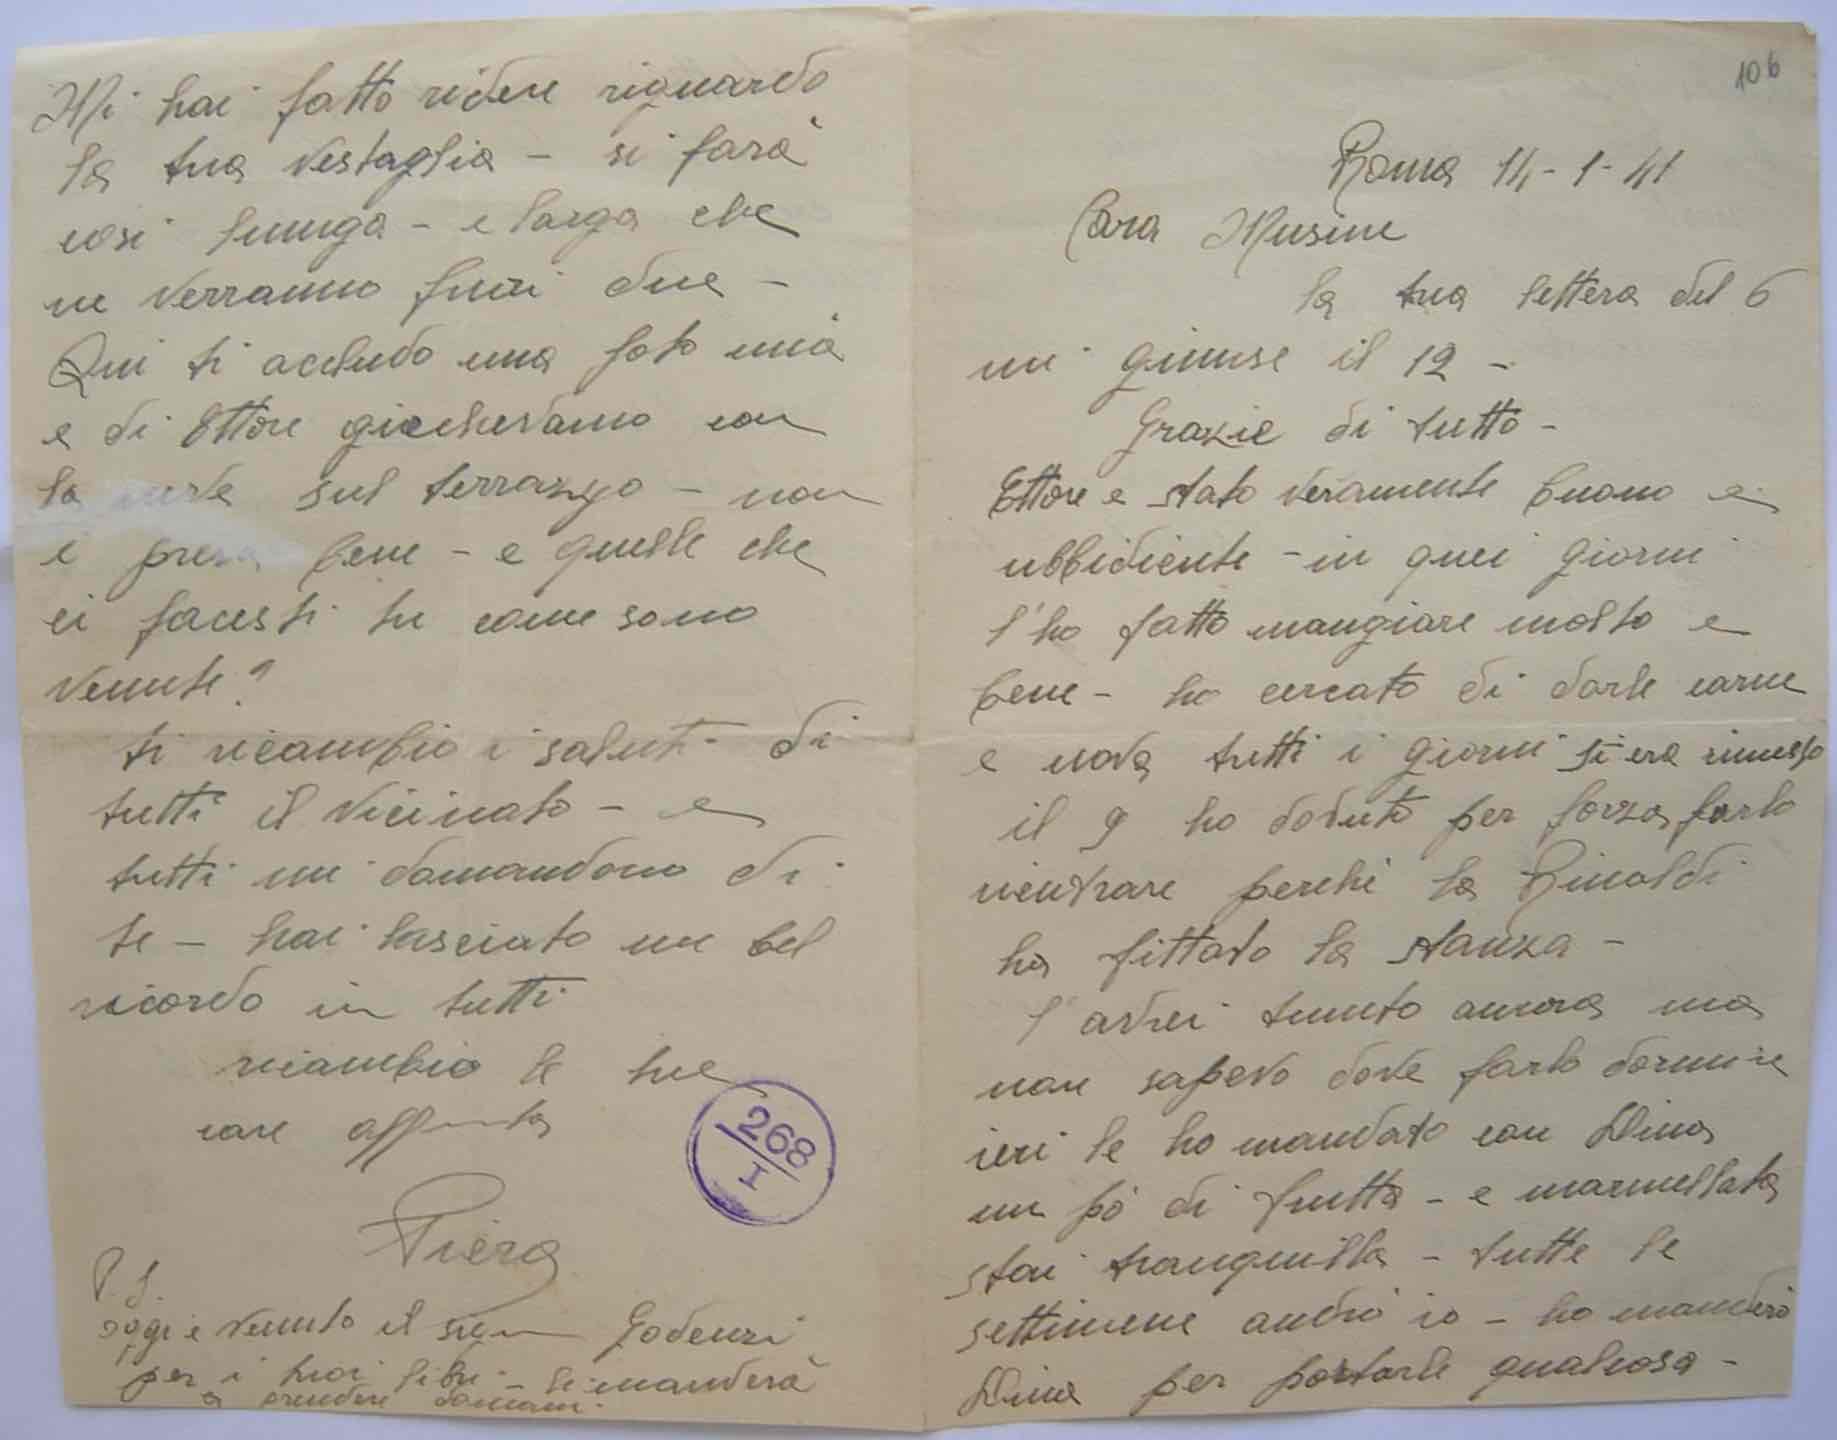 106
Roma 14-1-41
Cara Musine
la tua lettera del 6
mi giunse il 12 -
Grazie di tutto -
Ettore e stato veramente buono e
ubbidiente - in quei giorni
l'ho fatto mangiare molto e
bene - ho cercato di darle carne
e uova tutti i giorni si era rimesso
il 9 ho dovuto per forza farlo
rientrare perchè la Rinaldi
ha fittato la stanza -
l'avrei tenuto ancora ma
non sapevo dove farlo dormire
ieri le ho mandato con Dina
un pò di frutta - e marmellata
stai tranquilla - tutte le
settimene andrò io - ho manderò
Dina per portarle qualcosa -
Mi hai fatto ridere riguardo
la tua vestaglia - si farà
cosi lunga - e larga che
ne verranno fuori due -
Qui ti accludo una foto mia
e di Ettore giochevamo con
la neve sul terrazzo - non
è presa bene - e quelle che
ci facesti tu come sono
venute?
ti ricambio i saluti di
tutti il vicinato - e
tutti mi domandono di
te - hai lasciato un bel
ricordo in tutti
ricambio le tue
care
Piera
268
I
P.S.
oggi e venuto il Godenzi
per i tuoi libri - le manderà
a prendere domani.